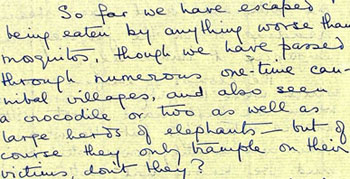 So far we have escaped
being eaten by anything worse than
mosquitos, though we have passed
through numerous one-time can-
nibal villages, and also seen
a crocodile or two as well as
large herds of elephants — but of
course they only trample on their
victims, don't they?